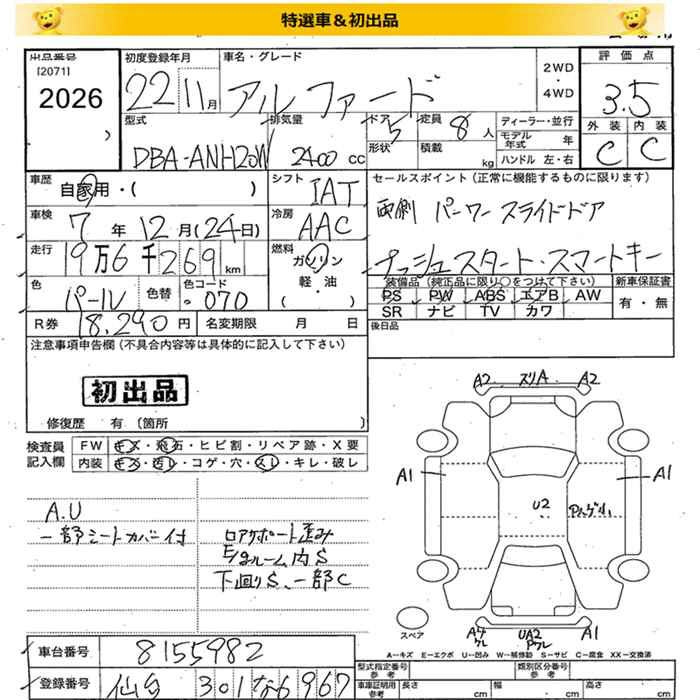 特選車&初出品
出品番号
[2071]
2026
初度登録年月
22 11月
車名・グレード
アルファード
2WD
・
4WD
評価点
3.5
外装 内装
C C
型式
DBA-ANH20W
排気量
2400 cc
ドア 5
形状
定員 8 人
積載 kg
ディーラー・並行
モデル年式 年
ハンドル 左・右
車歴
自家用・( )
シフト
IAT
車検
7年12月(24日)
冷房
AAC
走行
19万6千269km
燃料
ガソリン
軽・油
( )
色
パール
色替
色コード
・070
R券 18,290円
名変期限 月 日
セールスポイント(正常に機能するものに限ります)
両側 パーワースライドドア
プッシュスタート・スマートキー
装備品(純正品に限り○をつけて下さい)
PS PW ABS エアB AW
SR ナビ TV カワ
新車保証書
有・無
後日品
注意事項申告欄(不具合内容等は具体的に記入して下さい)
初出品
修復歴 有〔箇所 〕
検査員記入欄
FW キズ・飛石・ヒビ割・リペア跡・X要
内装 キズ・汚レ・コゲ・穴・スレ・キレ・破レ
A.U
一部シートカバー付
ロアサポート歪み
E/gルーム内S
下回りS、一部C
A2 スリA A2
A1 A1
U2
スペア
UA2
A1
A-キズ E-エクボ U-凹み W-補修跡 S-サビ C-腐食 XX-交換済
車台番号 8155982
登録番号 仙台 301 な6967
型式指定番号
参考
類別区分番号
車庫証明用参考
長さ cm 幅 cm 高さ cm